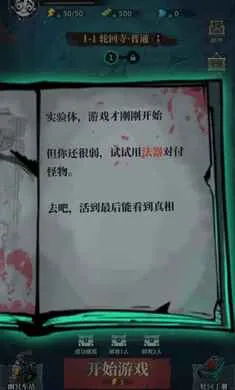 50/50
500
0
1-1 轮回寺·普通
1
实验体，游戏才刚刚开始
但你还很弱，试试用法器对付
怪物。
去吧，活到最后能看到真相
开始游戏